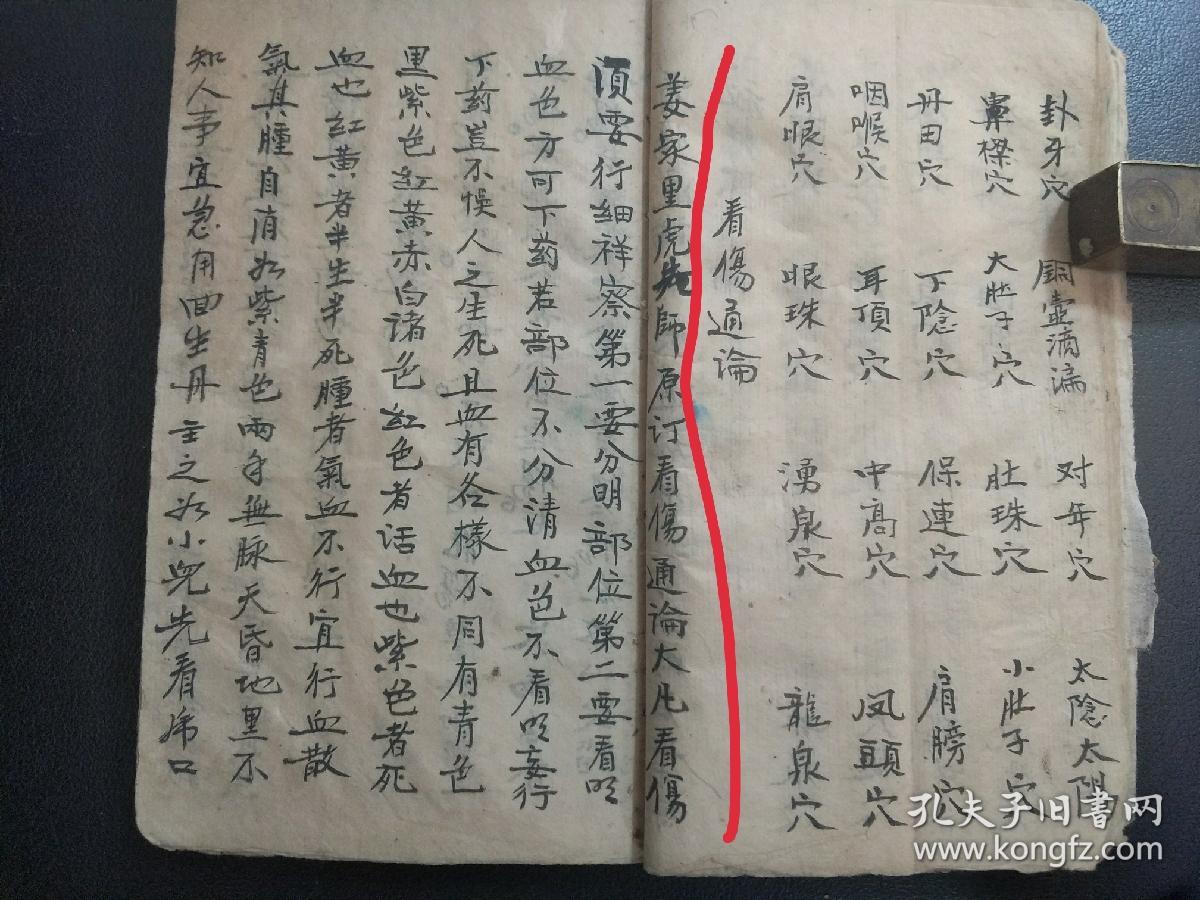 卦牙穴 銅壺滴漏 对年穴 太陰太陽
鼻樑穴 大肚子穴 肚珠穴 小肚子穴
丹田穴 下陰穴 保連穴 肩膀穴
咽喉穴 耳頂穴 中高穴 凤頭穴
肩眼穴 眼珠穴 湧泉穴 龍泉穴
看傷通論
姜家里虎先師原订看傷通論大凡看傷
須要行細祥察第一要分明部位第二要看明
血色方可下药若部位不分清血色不看明妄行
下药豈不悞人之生死且血有各樣不同有青色
黑紫色红黄赤白诸色红色者活血也紫色者死
血也红黄者半生半死腫者氣血不行宜行血散
氣其腫自消如紫青色兩手無脉天昏地黑不
知人事宜急用回生丹主之如小兒先看虎口
孔夫子旧書网
www.kongfz.com